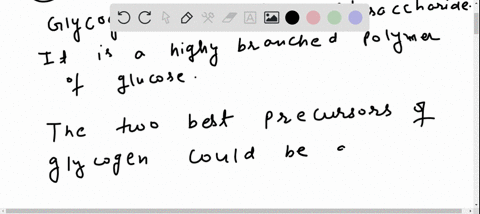 saccharide.
It is a highy branched polymer
of glucose.
The two best precursors of
glycogen could be